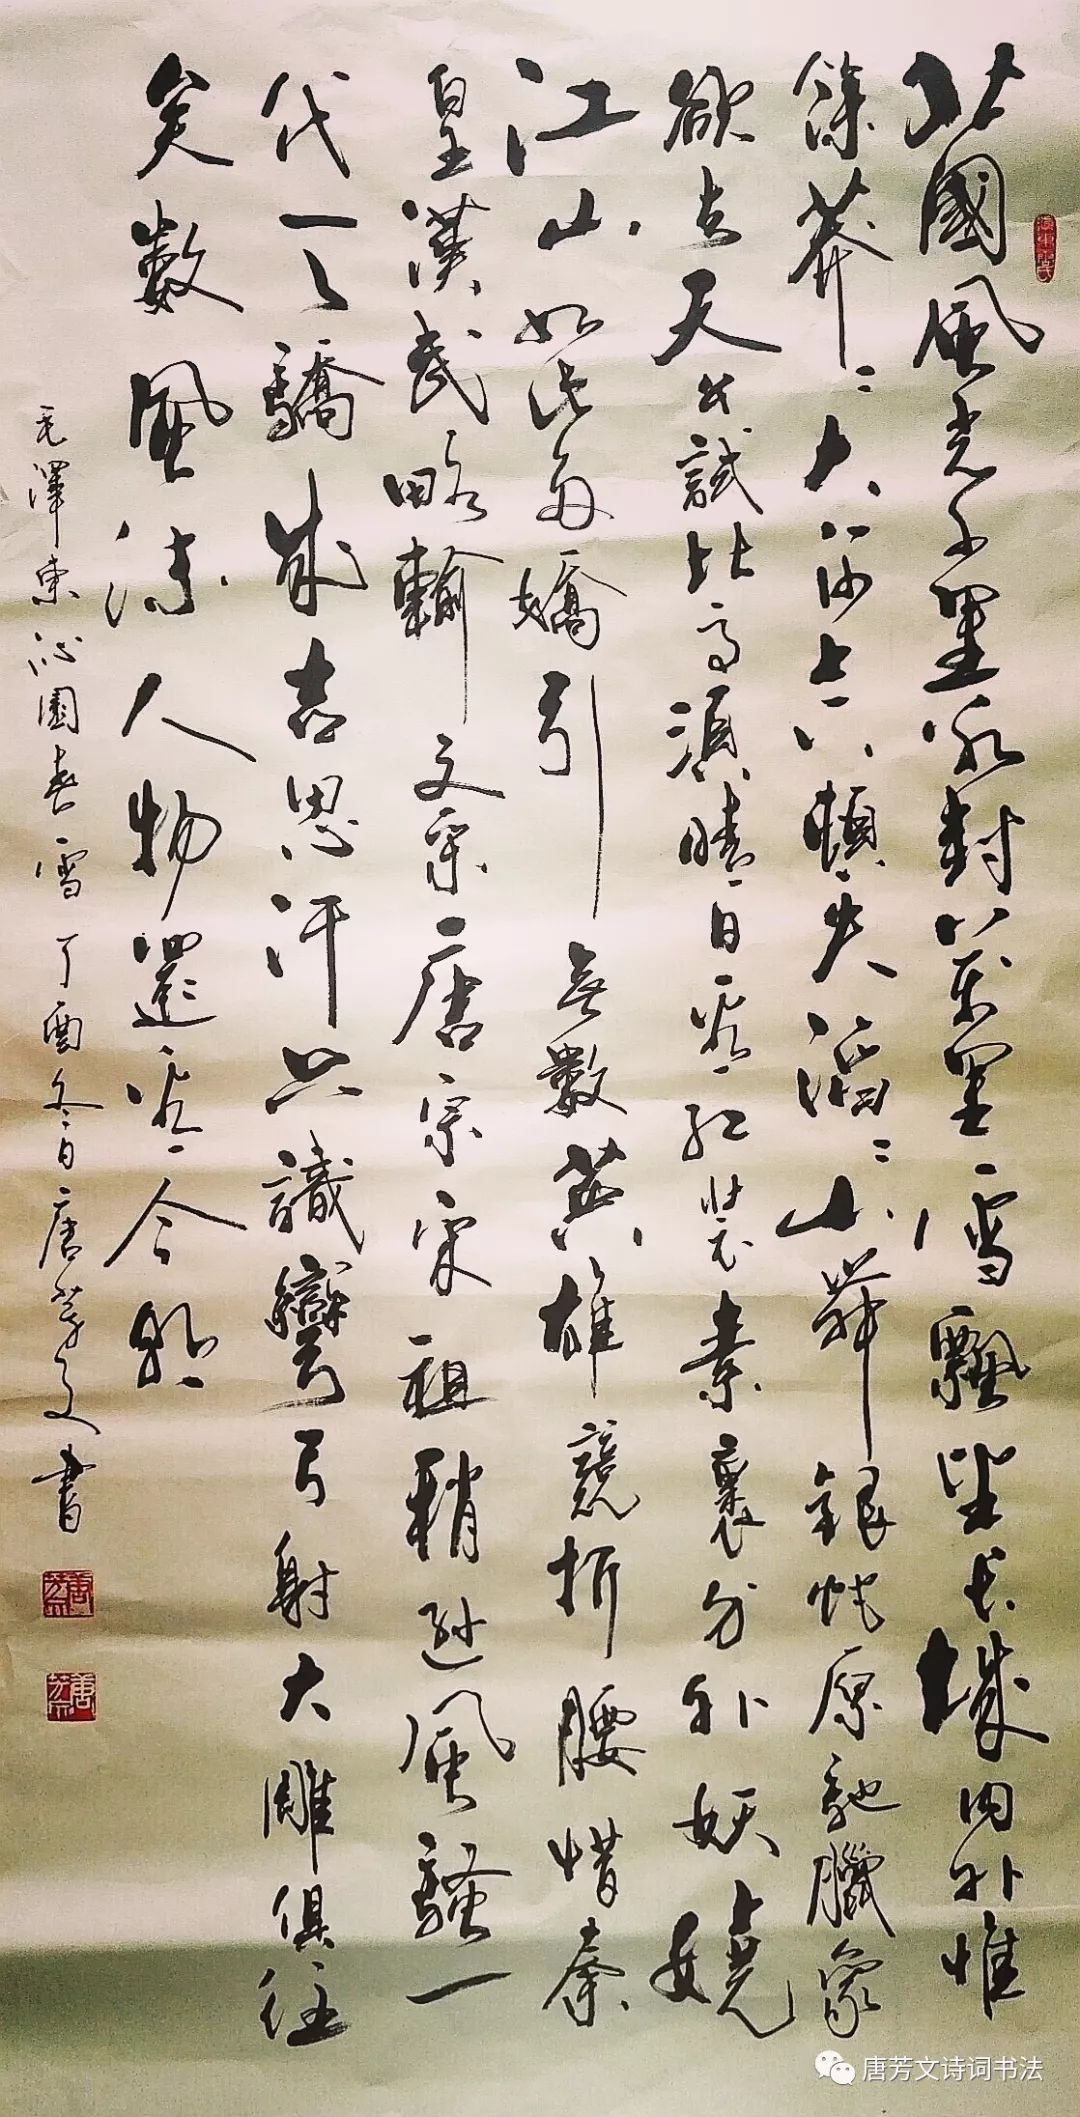 北國風光千里冰封萬里雪飄望長城内外惟
餘莽々大河上下頓失滔々山舞銀蛇原馳臘象
欲与天公試比高須晴日看紅裝素裹分外妖嬈
江山如此多嬌引無數英雄競折腰惜秦
皇漢武略輸文采唐宗宋祖稍遜風騷一
代天驕成吉思汗只識彎弓射大雕俱往
矣數風流人物還看今朝
毛澤東沁園春雪丁酉冬日唐芳文書
唐芳文诗词书法